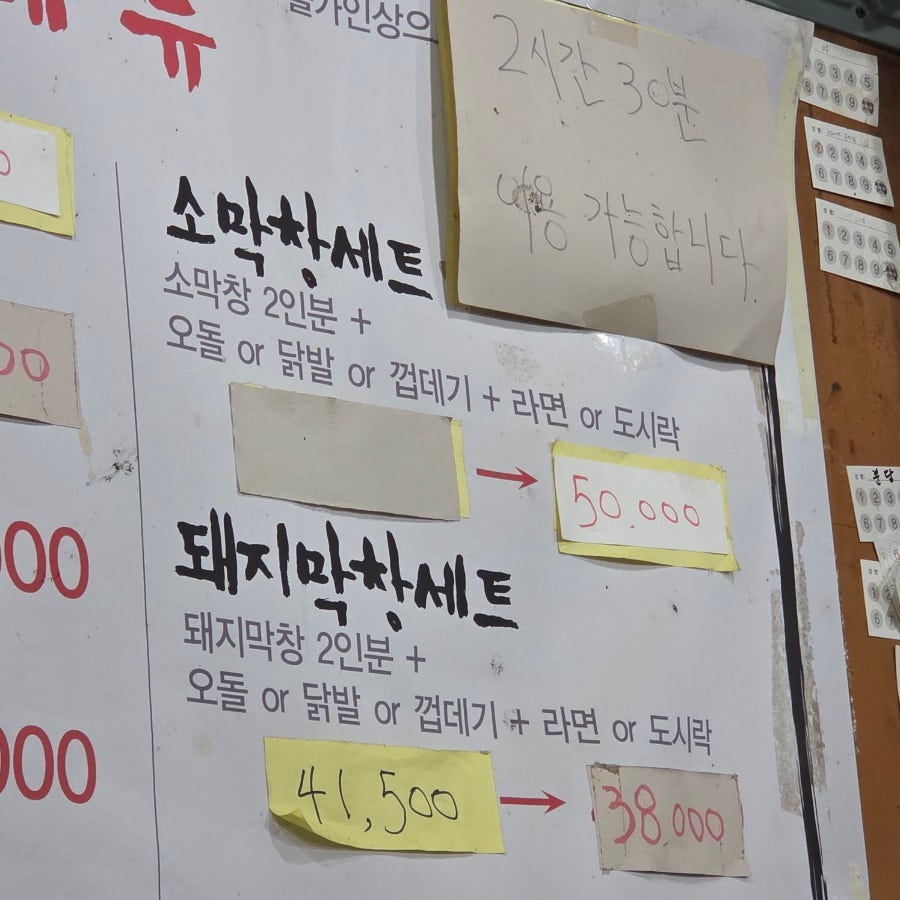 뉴
물가인상으
2시간 30분
이용 가능합니다.
소막창세트
소막창 2인분 +
오돌 or 닭발 or 껍데기 + 라면 or 도시락
→ 50.000
돼지막창세트
돼지막창 2인분 +
오돌 or 닭발 or 껍데기 + 라면 or 도시락
41,500 → 38000
0
00
000
000
1 2 3 4 5
6 7 8 9
1 2 3 4 5
6 7 8 9
1 2 3 4 5
6 7 8 9
분당
1 2 3
6 7 8
1 2
6 7